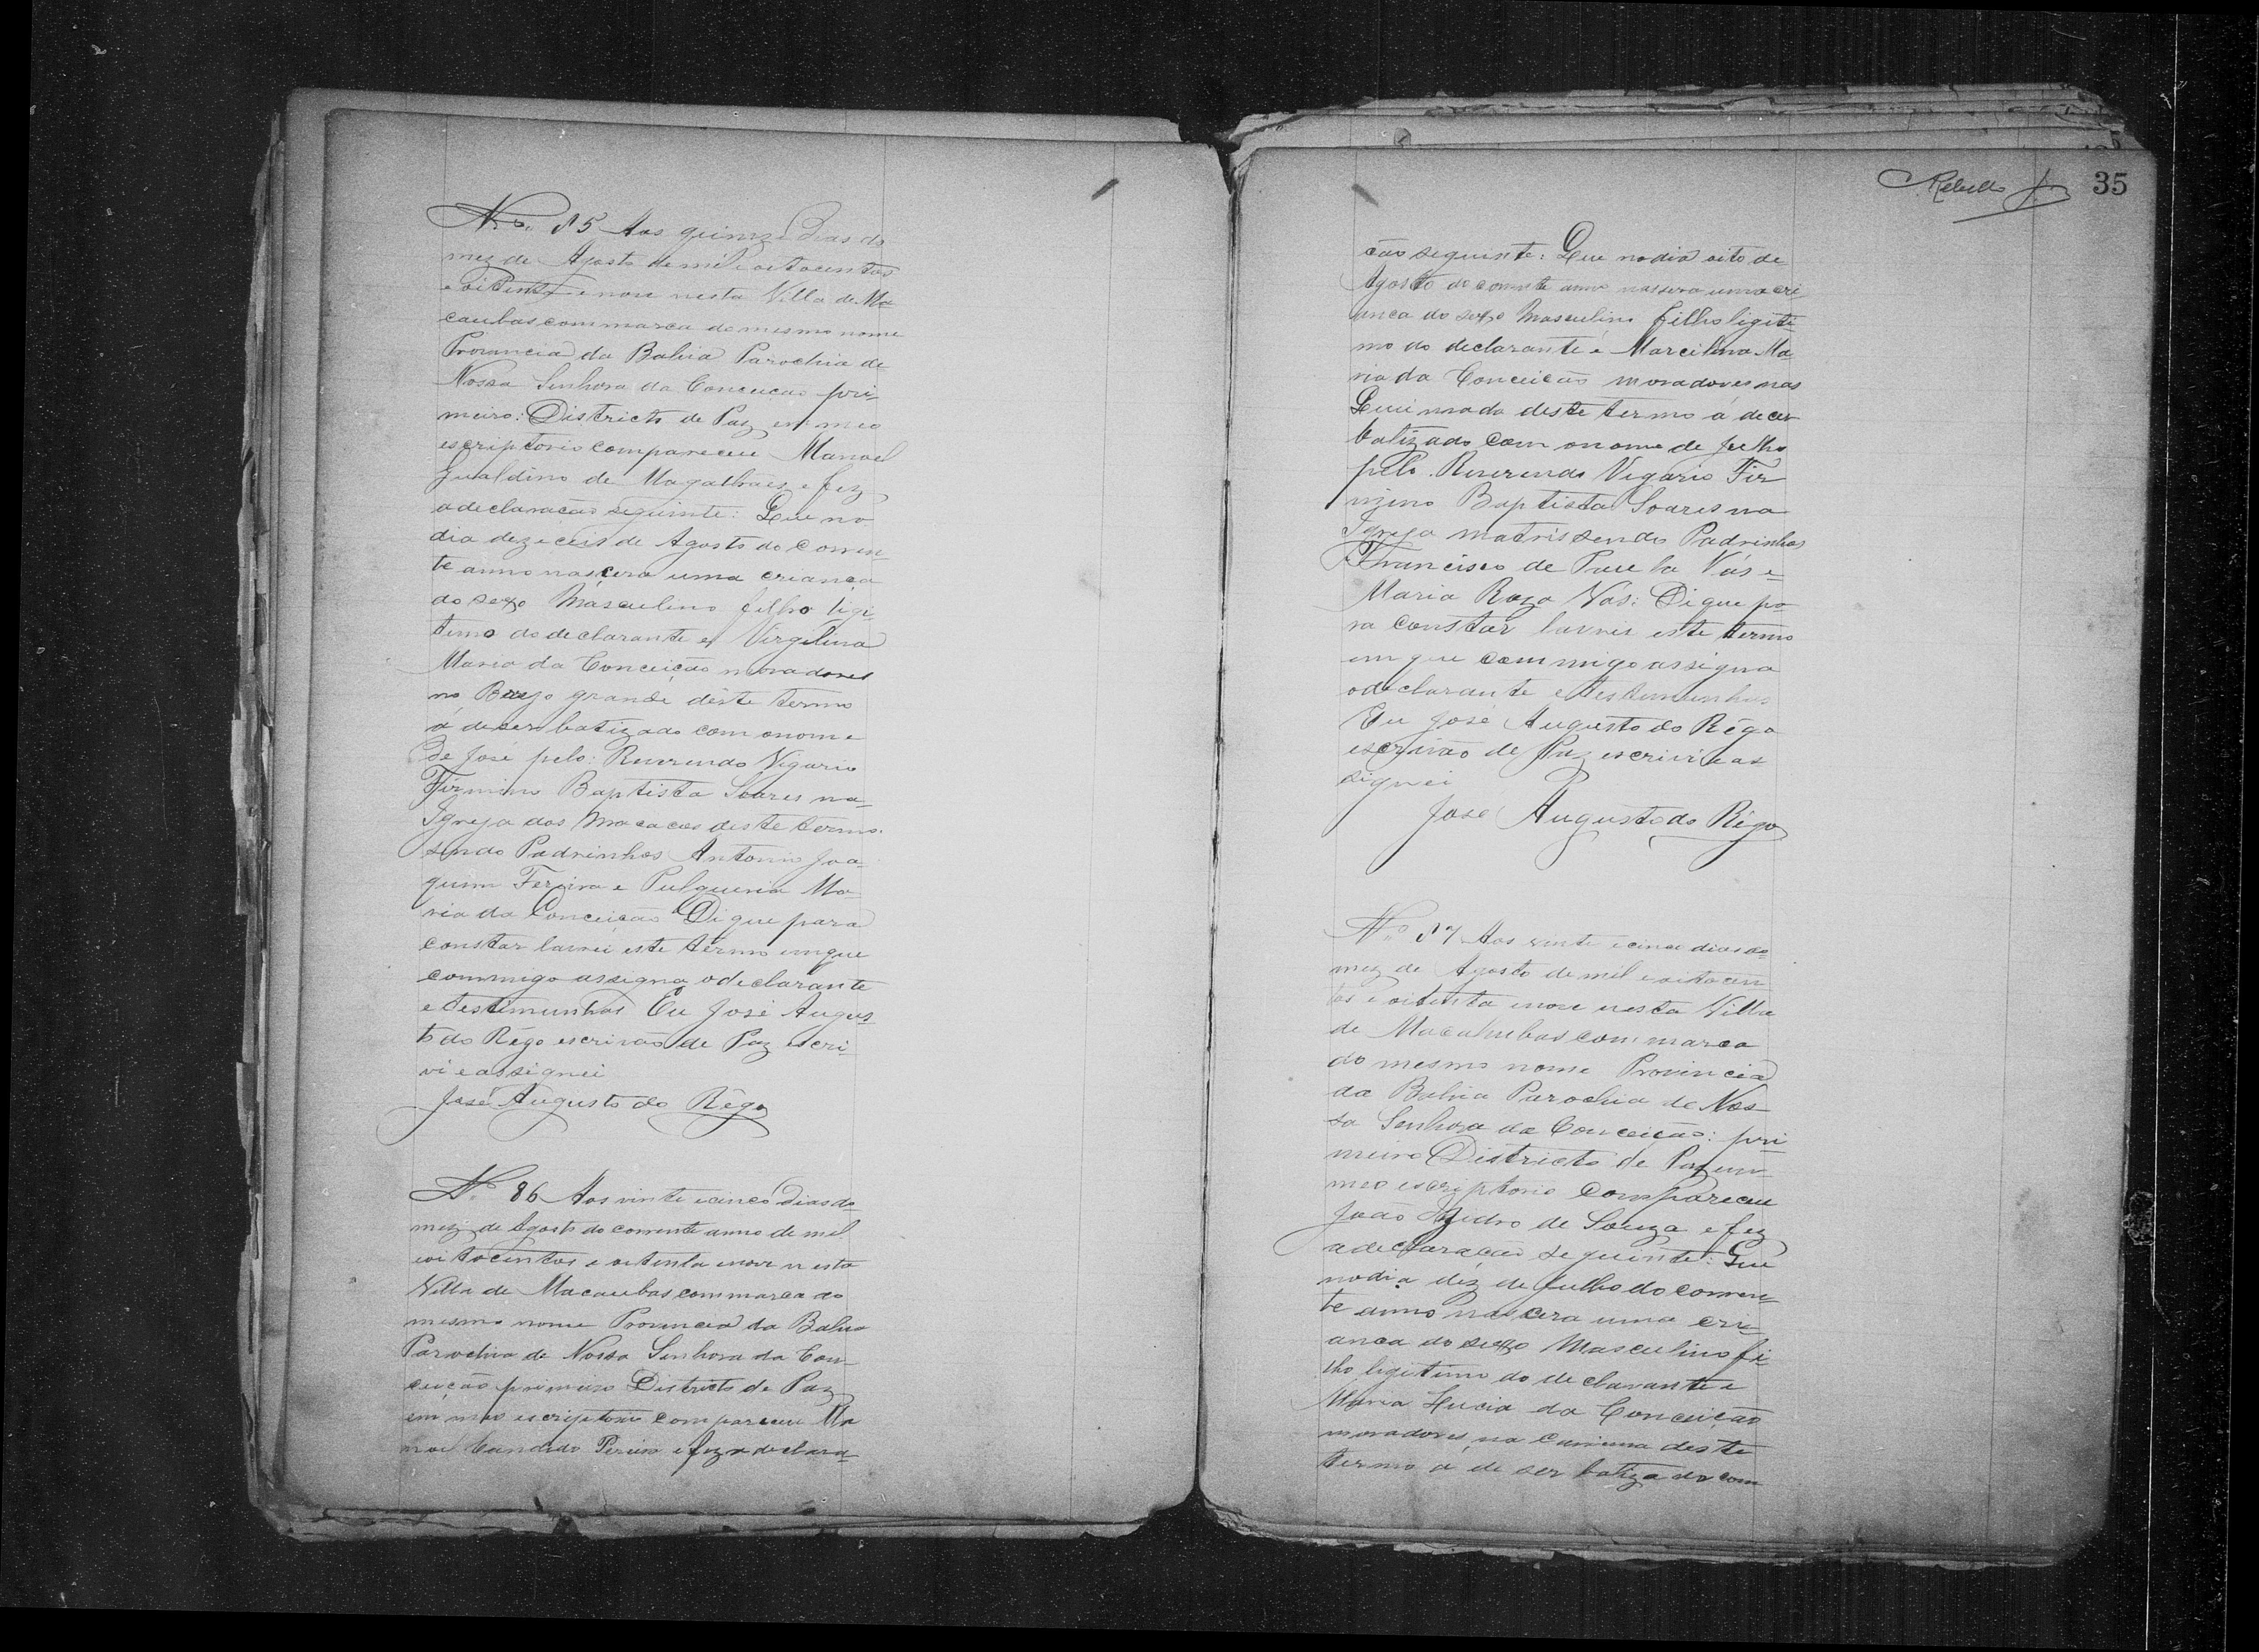 Nº. 85 Aos quinze Dias do
mez de Agosto de mil e oitocentos
e oitenta e nove nesta Villa de Ma
caubas commarca do mesmo nome
Provincia da Bahia Parochia de
Nossa Senhora da Conceicao pri-
meiro: Districto de Paz em meo
escriptorio compareceu Manoel
Gualdino de Magalhaes e fez
a declaracão seguinte: Que no
dia dezeceis de Agosto do corren-
te anno nascera uma creanca
do sexo Masculino filho legi-
timo do declarante e Virgilina
Maria da Conceição moradores
no Brejo grande deste termo
á de ser batizado com o nome
de José pelo: Reverendo Vigario
Firmino Baptista Soares na
Igreja dos Macacos deste termo.
sendo Padrinhos Antonio Joa-
quim Ferreira e Pulqueria Ma-
ria da Conceição Di que para
constar lavrei este termo em que
commigo assigna o declarante
e testimunhas Eu José Augus-
to do Rêgo escrivão de Paz escri-
vi e assignei
José Augusto do Rêgo
Nº 86 Aos vinte e cinco Dias do
mez de Agosto do corrente anno de mil
oitocentos e oitenta e nove nesta
Villa de Macaubas commarca do
mesmo nome Provincia da Bahia
Parochia de Nossa Senhora da Con-
ceição primeiro Districto de Paz
em meo escriptorio compareceu Ma
noel Candido Pereira e fez a declara-
Rebello Jr 35
cão seguinte: Que no dia oito de
Agosto do corrente anno nascera uma cri
anca do sexo Masculino filho legiti-
mo do declarante e Marcelina Ma-
ria da Conceicão moradores nas
Queimada deste termo á de ser
batizado com o nome de Julho
pelo. Reverendo Vigario Fir
mino Baptista Soares na
Igreja matris sendo Padrinhos
Francisco de Paula Vás e
Maria Roza Vás: Di que pa-
ra constar lavrei este termo
em que commigo assigna
o declarante e testemunhas
Eu José Augusto do Rêgo
escrivão de Paz escrivi e as
signei
José Augusto do Rêgo
Nº 87 Aos vinte e cinco dias do
mez de Agosto de mil e oitocen
tos e oitenta e nove nesta Villa
de Macahubas commarca
do mesmo nome Provincia
da Bahia Parochia de Nos-
sa Senhora da Conceicão: pri-
meiro Districto de Paz em
meo escriptorio compareceu
João Izidro de Souza e fez
a declaração seguinte: Que
no dia déz de Julho do corren-
te anno nascera uma cri-
anca do sexo Masculino fi-
lho legitimo do declarante e
Maria Lucia da Conceição
moradores na deste
termo a de ser batizado com